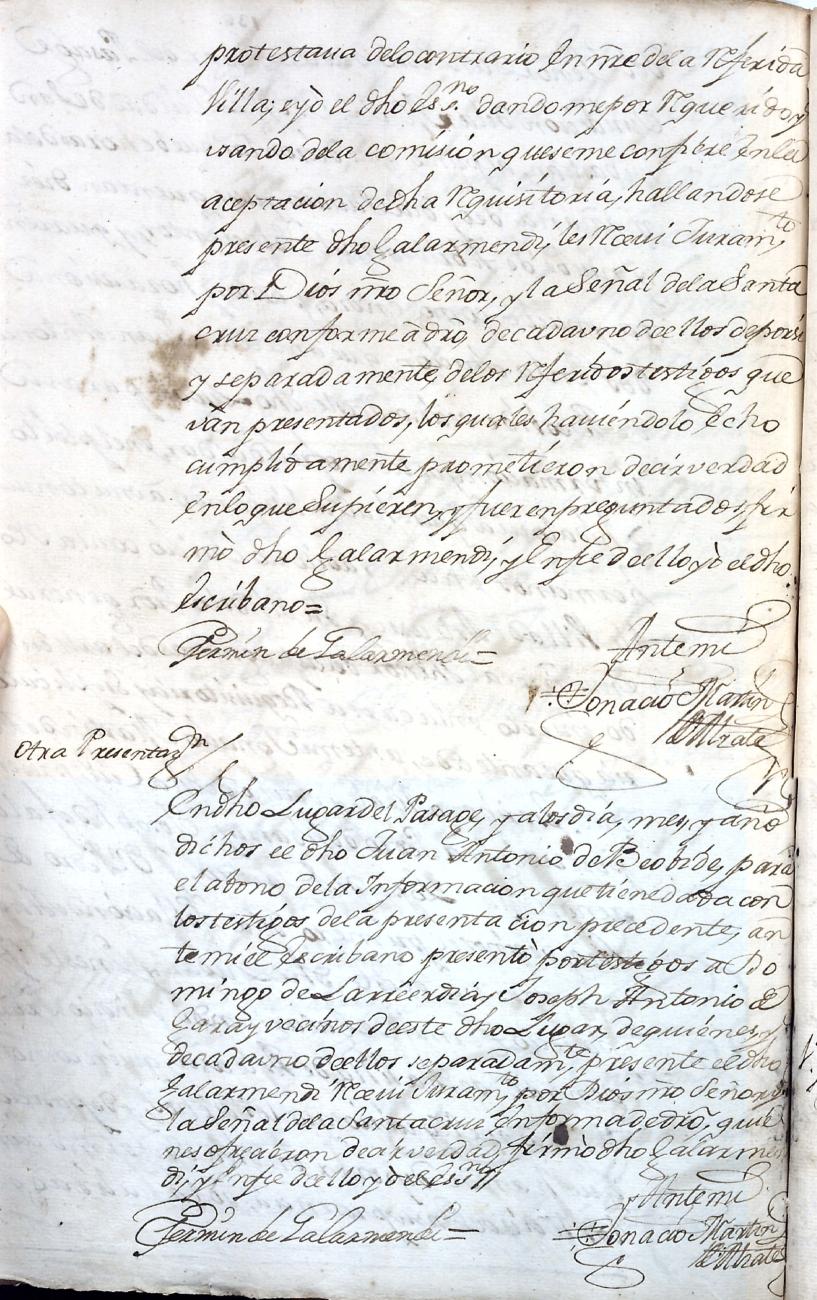 protestaua delo contrario En nr̃e dela Rferida
Villa; e yò el dho Es.no dandome por Rquerido, y
usando dela comisión que se me confiére En la
aceptacion de dha Rquisitoria, hallandose
presente dho Galarmendi, les Rceui Juram.to
por Diós nr̃o Señor, y la Señal dela Santa
cruz conforme à dro, de cada uno de ellos de por sí
y separadamente, delos Rferidos testigos que
ván presentados, los quales haviéndolo Echo
cumplidamente prometieron decir verdad
En lo que Supiéren, y fueren preguntados, fir
mò dho Galarmendi, y En fee de ello yò el dho
Escribano=
Fermin de Galarmendi=
Antemi
Ignacio Martin
de Alzate
Otra Presentaz.n
En dho Lugar del Pasage, y a los día, mes, y año
dichos el dho Juan Antonio de Beobide, para
el abono dela Informacion que tiene dada con
los testigos dela presentacion precedente, an
te mi el Escribano presentò por testigos a Do
mingo de Larrerdia, y Joseph Antonio de
Garay vecinos de este dho Lugar, de quiénes, y
de cada uno de ellos separadam.te, presente el dho
Galarmendi Rceui Juram.to por Dios nr̃o Señor, y
la Señal dela Santa cruz En forma de dro, quié
nes ofrecieron decir verdad, firmò dho Galarmen
di, y En fee de ello yò el Ess.no
Antemi
Fermin de Galarmendi=
Ignacio Martin
de Alzate